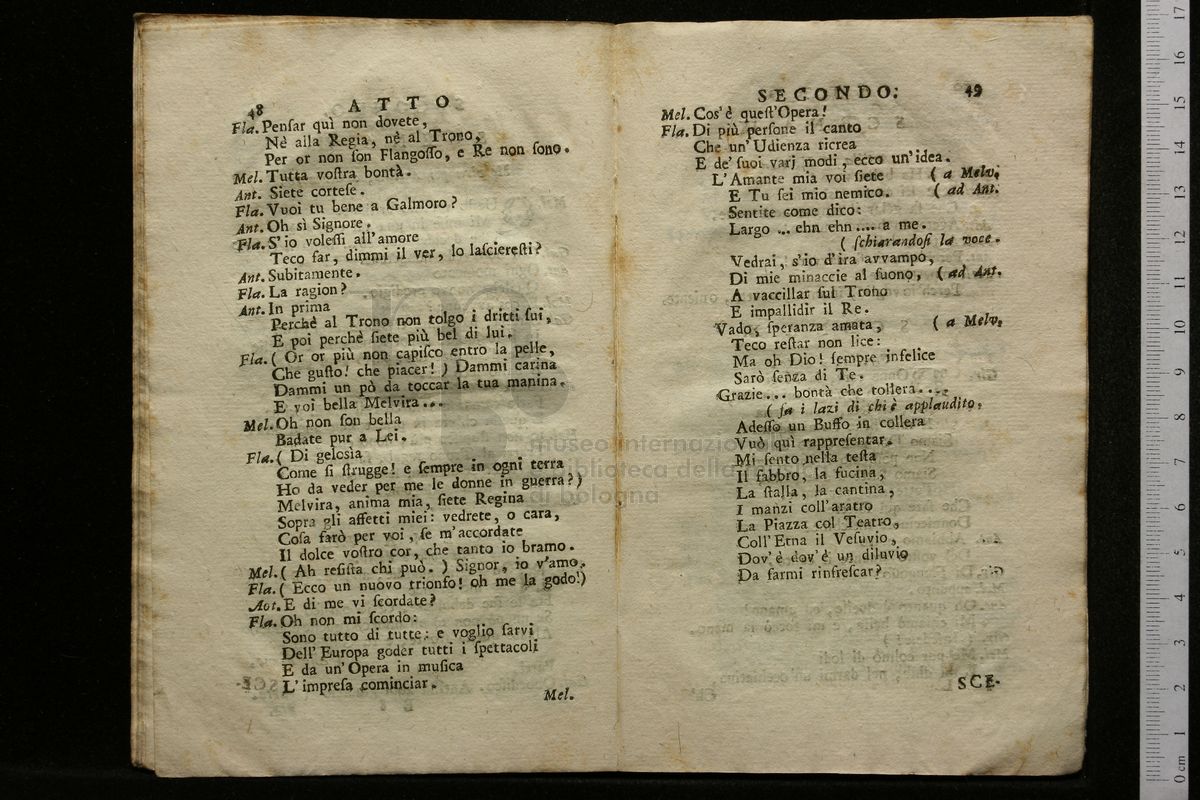 48 ATTO
Fla. Penſar quì non dovete,
Nè alla Regia, nè al Trono,
Per or non ſon Flangoſſo, e Re non ſono.
Mel. Tutta voſtra bontà.
Ant. Siete corteſe.
Fla. Vuoi tu bene a Galmoro?
Ant. Oh sì Signore.
Fla. S'io voleſſi all'amore
Teco far, dimmi il ver, lo laſciereſti?
Ant. Subitamente.
Fla. La ragion?
Ant. In prima
Perchè al Trono non tolgo i dritti ſui,
E poi perchè ſiete più bel di lui.
Fla. ( Or or più non capiſco entro la pelle,
Che guſto! che piacer! ) Dammi carina
Dammi un pò da toccar la tua manina.
E voi bella Melvira...
Mel. Oh non ſon bella
Badate pur a Lei.
Fla. ( Di geloſia
Come ſi ſtrugge! e ſempre in ogni terra
Ho da veder per me le donne in guerra? )
Melvira, anima mia, ſiete Regina
Sopra gli affetti miei: vedrete, o cara,
Coſa farò per voi, ſe m'accordate
Il dolce voſtro cor, che tanto io bramo.
Mel. ( Ah reſiſta chi può. ) Signor, io v'amo.
Fla. ( Ecco un nuovo trionfo! oh me la godo!)
Aot. E di me vi ſcordate?
Fla. Oh non mi ſcordo:
Sono tutto di tutte: e voglio farvi
Dell'Europa goder tutti i ſpettacoli
E da un'Opera in muſica
L'impreſa cominciar.
Mel.
SECONDO. 49
Mel. Cos'è queſt'Opera!
Fla. Di più perſone il canto
Che un'Udienza ricrea
E de' ſuoi varj modi, ecco un'idea.
L'Amante mia voi ſiete ( a Melv.
E Tu ſei mio nemico. ( ad Ant.
Sentite come dico:
Largo ... ehn ehn .... a me.
( ſchiarandoſi la voce.
Vedrai, s'io d'ira avvampo,
Di mie minaccie al ſuono, ( ad Ant.
A vaccillar ſul Trono
E impallidir il Re.
Vado, ſperanza amata, ( a Melv.
Teco reſtar non lice:
Ma oh Dio! ſempre infelice
Sarò ſenza di Te.
Grazie... bontà che tollera....
( fa i lazi di chi è applaudito.
Adeſſo un Buffo in collera
Vuò quì rappreſentar.
Mi ſento nella teſta
Il fabbro, la fucina,
La ſtalla, la cantina,
I manzi coll'aratro
La Piazza col Teatro,
Coll'Etna il Veſuvio,
Dov'è dov'è un diluvio
Da farmi rinfreſcar?
SCE-
museo internazio
biblioteca della
di bologna
0 cm 1 2 3 4 5 6 7 8 9 10 11 12 13 14 15 16 17